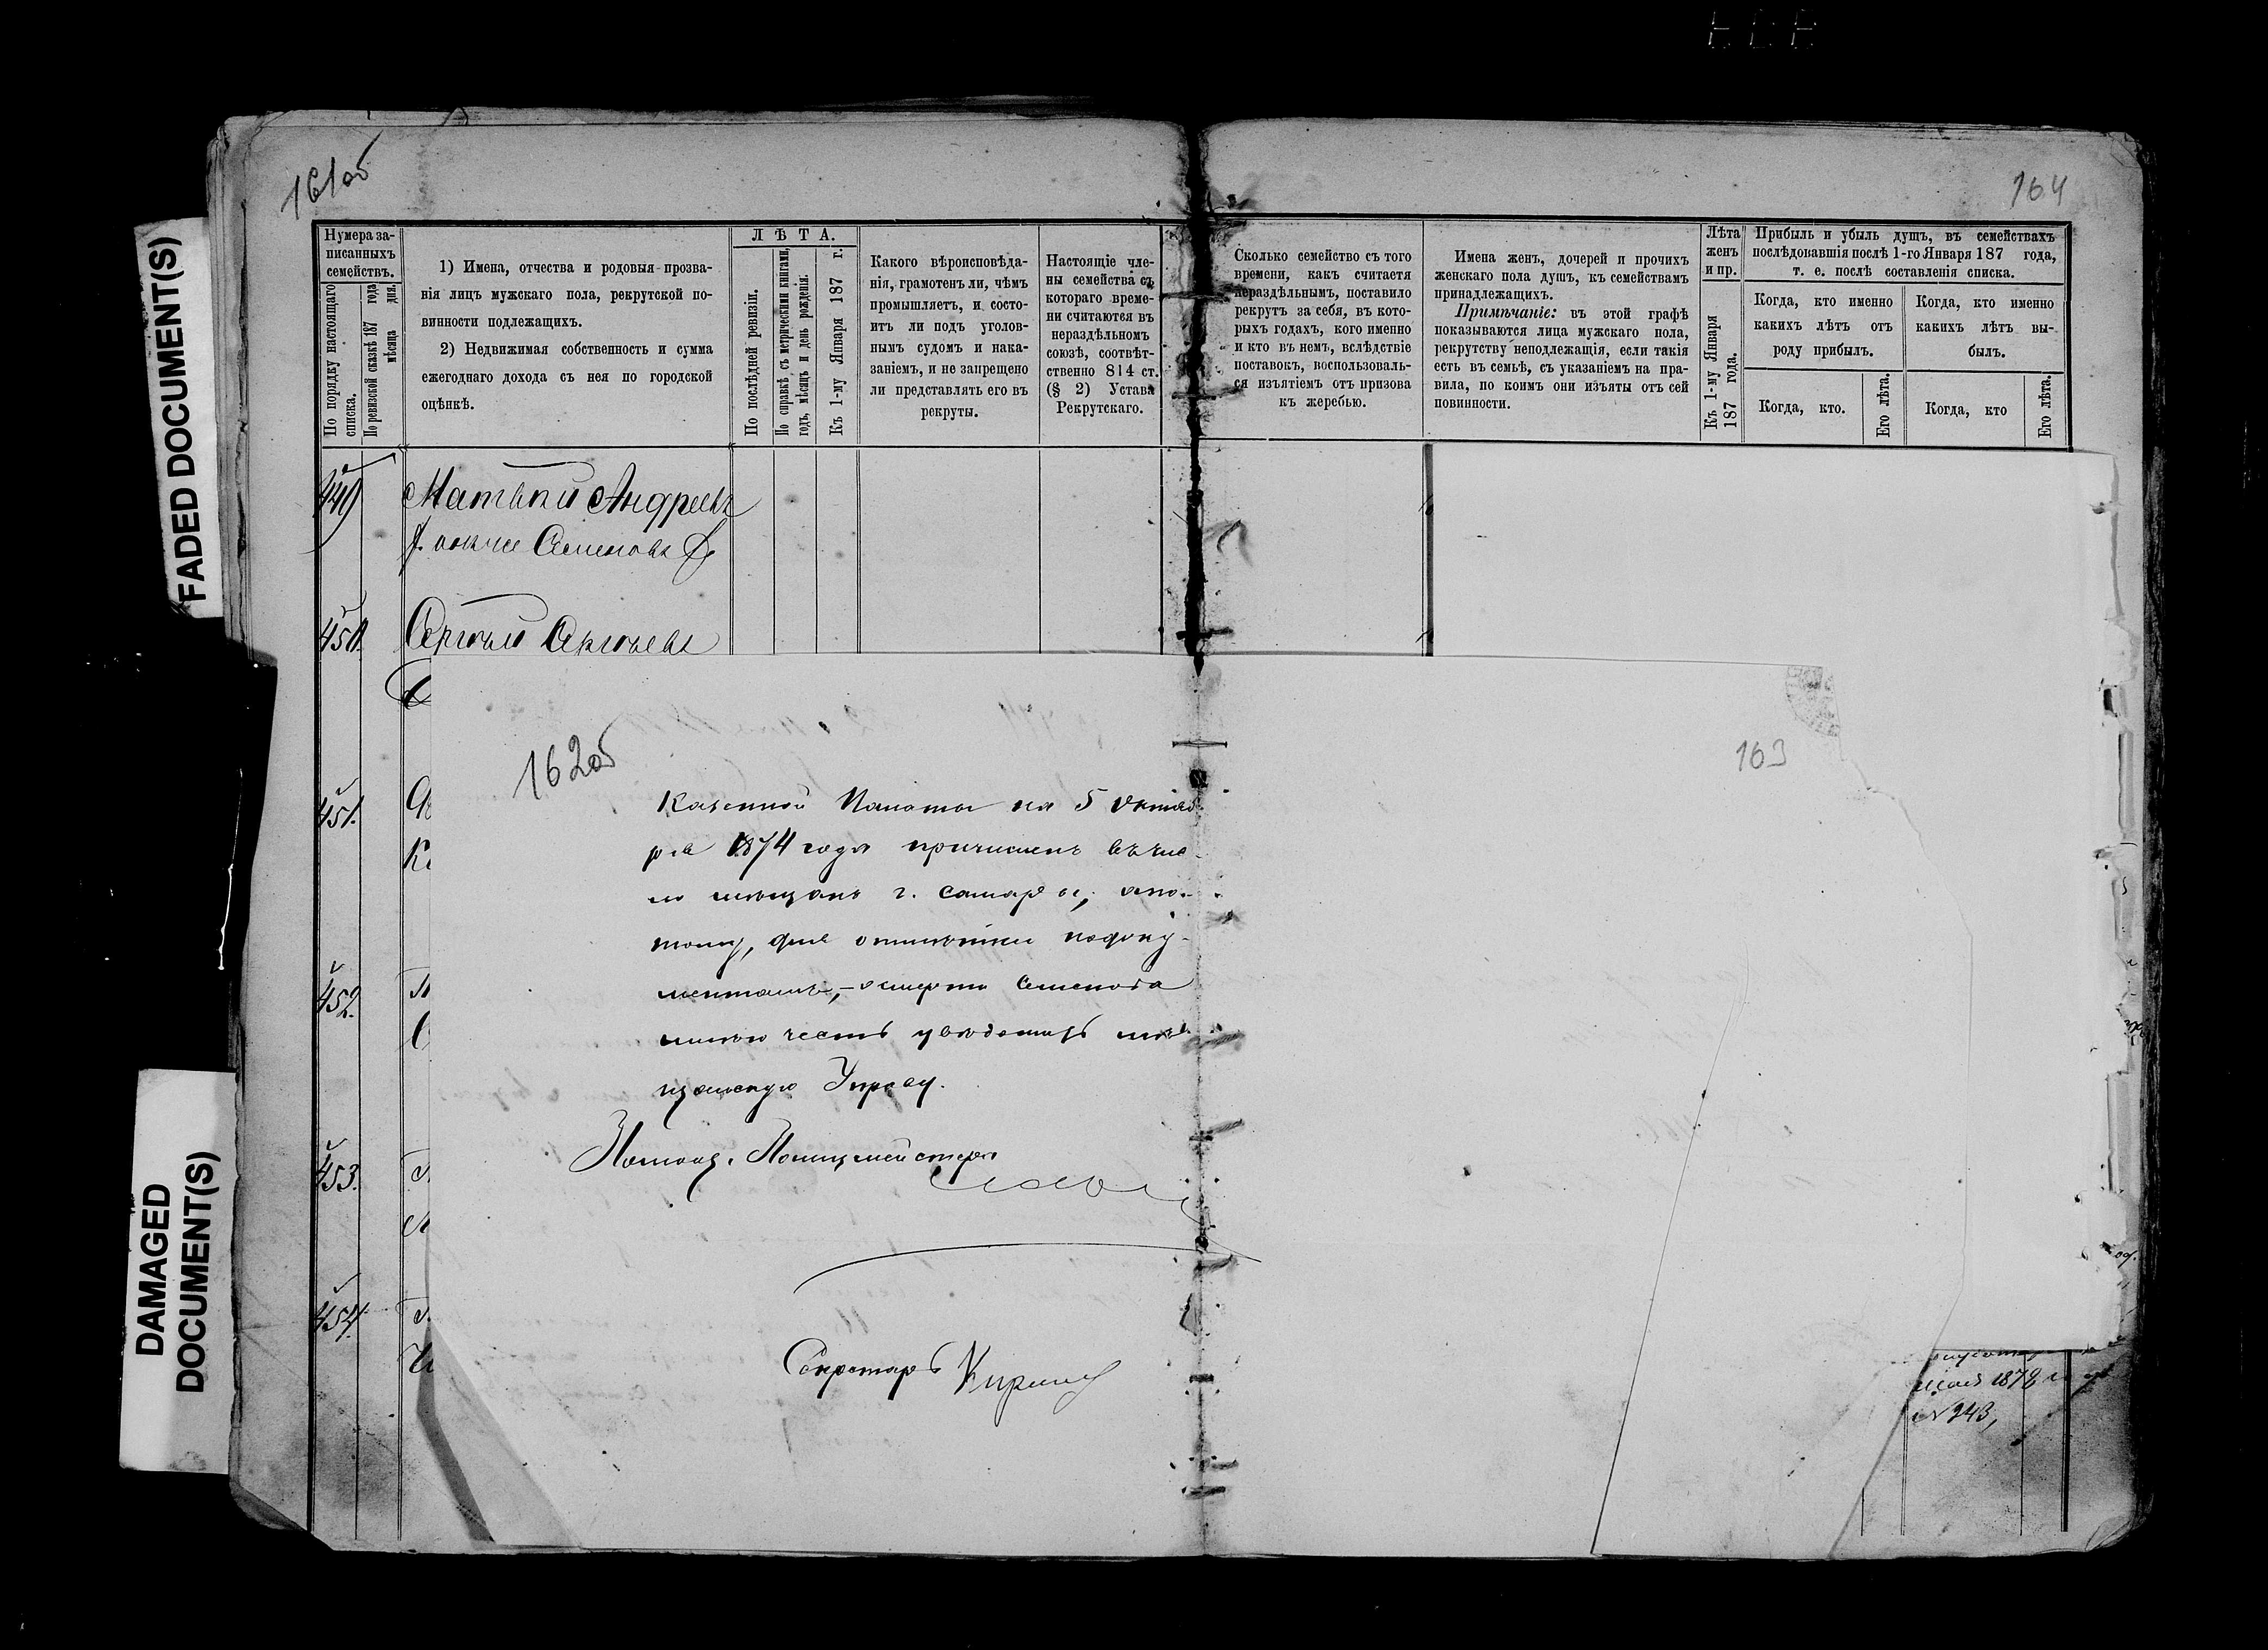 161об
164
FADED DOCUMENT(S)
DAMAGED
DOCUMENT(S)
Нумера за-
писанныхъ
семействъ.
По порядку настоящаго
списка.
По ревизской сказкѣ 187 года
мѣсяца дня.
1) Имена, отчества и родовыя прозва-
нія лицъ мужскаго пола, рекрутской по-
винности подлежащихъ.
2) Недвижимая собственность и сумма
ежегоднаго дохода съ нея по городской
оцѣнкѣ.
ЛѢТА.
По послѣдней ревизіи.
По справкѣ съ метрическими книгами,
годъ, мѣсяцъ и день рожденія.
Къ 1-му Января 187 г.
Какого вѣроисповѣда-
нія, грамотенъ ли, чѣмъ
промышляетъ, и состо-
итъ ли подъ уголов-
нымъ судомъ и нака-
заніемъ, и не запрещено
ли представлять его въ
рекруты.
Настоящіе чле-
ны семейства съ
котораго време-
ни считаются въ
нераздѣльномъ
союзѣ, соотвѣт-
ственно 814 ст.
(§ 2) Устава
Рекрутскаго.
Сколько семейство съ того
времени, какъ считается
нераздѣльнымъ, поставило
рекрутъ за себя, въ кото-
рыхъ годахъ, кого именно
и кто въ немъ, вслѣдствіе
поставокъ, воспользовалъ-
ся изъятіемъ отъ призова
къ жеребью.
Имена женъ, дочерей и прочихъ
женскаго пола душъ, къ семействамъ
принадлежащихъ.
Примѣчаніе: въ этой графѣ
показываются лица мужскаго пола,
рекрутству неподлежащія, если такія
есть въ семьѣ, съ указаніемъ на пра-
вила, по коимъ они изъяты отъ сей
повинности.
Лѣта
женъ
и пр.
Къ 1-му Января
187 года.
Прибыль и убыль душъ, въ семействахъ
послѣдовавшія послѣ 1-го Января 187 года,
т. е. послѣ составленія списка.
Когда, кто именно
какихъ лѣтъ отъ
роду прибылъ.
Когда, кто.
Его лѣта.
Когда, кто именно
какихъ лѣтъ вы-
былъ.
Когда, кто
Его лѣта.
449 Матвѣй Андреевъ
Семеновъ
450. Сергѣй Сергѣевъ
451.
452.
453.
454.
162об
163
Казенной Палаты на 5 Октяб
ря 1874 года причисленъ въ чис-
ло мѣщанъ г. Самары, а по-
тому, для отмѣтки по доку-
ментамъ, о смерти Семенова
имѣю честь увѣдомить мѣ
щанскую Управу.
Помощ. Полицмейстера
Секретарь
мая 1878
№ 243,